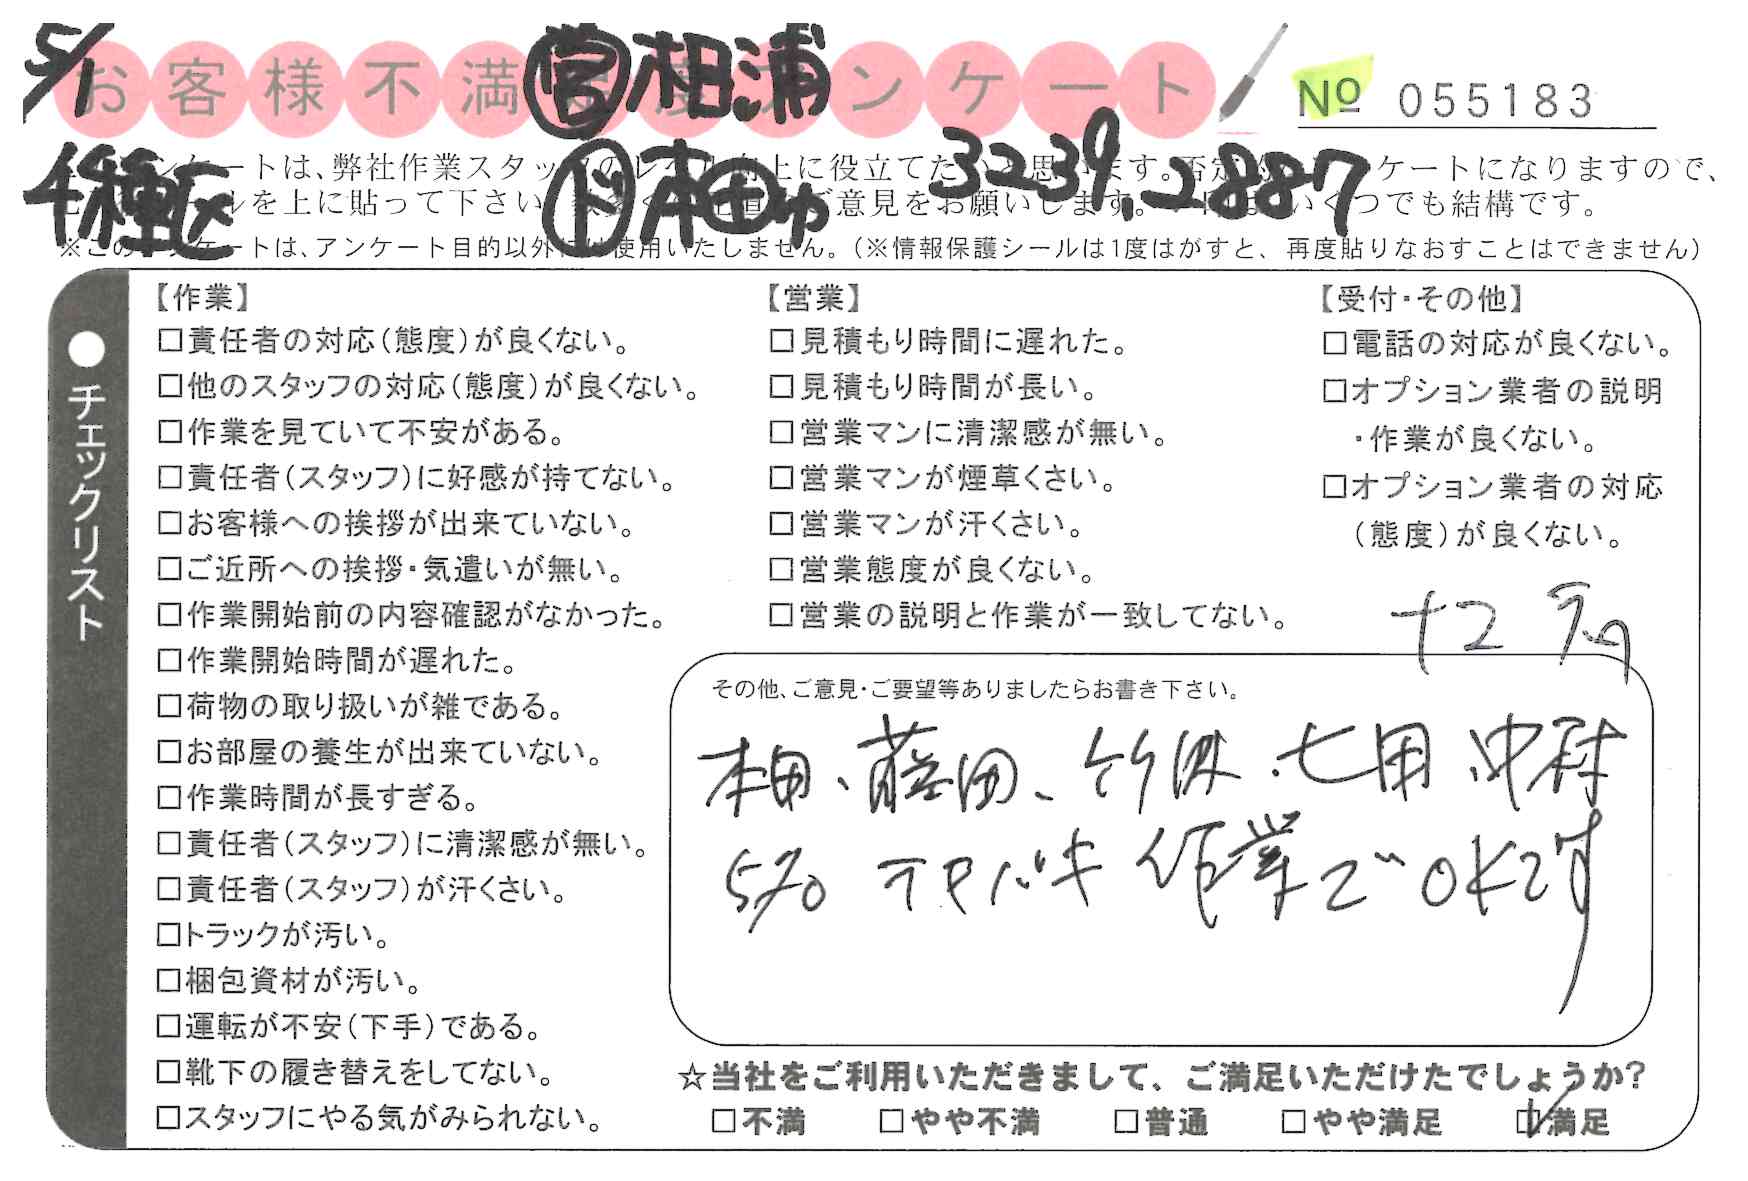 5/1 営 相浦
お客様不満足度アンケート
No 055183
千種区 ド 本田ゆ 3239,2887
※このアンケートは、アンケート目的以外には使用いたしません。(※情報保護シールは1度はがすと、再度貼りなおすことはできません)
●チェックリスト
【作業】
□責任者の対応(態度)が良くない。
□他のスタッフの対応(態度)が良くない。
□作業を見ていて不安がある。
□責任者(スタッフ)に好感が持てない。
□お客様への挨拶が出来ていない。
□ご近所への挨拶・気遣いが無い。
□作業開始前の内容確認がなかった。
□作業開始時間が遅れた。
□荷物の取り扱いが雑である。
□お部屋の養生が出来ていない。
□作業時間が長すぎる。
□責任者(スタッフ)に清潔感が無い。
□責任者(スタッフ)が汗くさい。
□トラックが汚い。
□梱包資材が汚い。
□運転が不安(下手)である。
□靴下の履き替えをしてない。
□スタッフにやる気がみられない。
【営業】
□見積もり時間に遅れた。
□見積もり時間が長い。
□営業マンに清潔感が無い。
□営業マンが煙草くさい。
□営業マンが汗くさい。
□営業態度が良くない。
□営業の説明と作業が一致してない。
【受付・その他】
□電話の対応が良くない。
□オプション業者の説明
・作業が良くない。
□オプション業者の対応
(態度)が良くない。
その他、ご意見・ご要望等ありましたらお書き下さい。
本田、藤田、竹原、七用、中村
テキパキ作業でOKです
☆当社をご利用いただきまして、ご満足いただけたでしょうか?
□不満 □やや不満 □普通 □やや満足 ☑満足